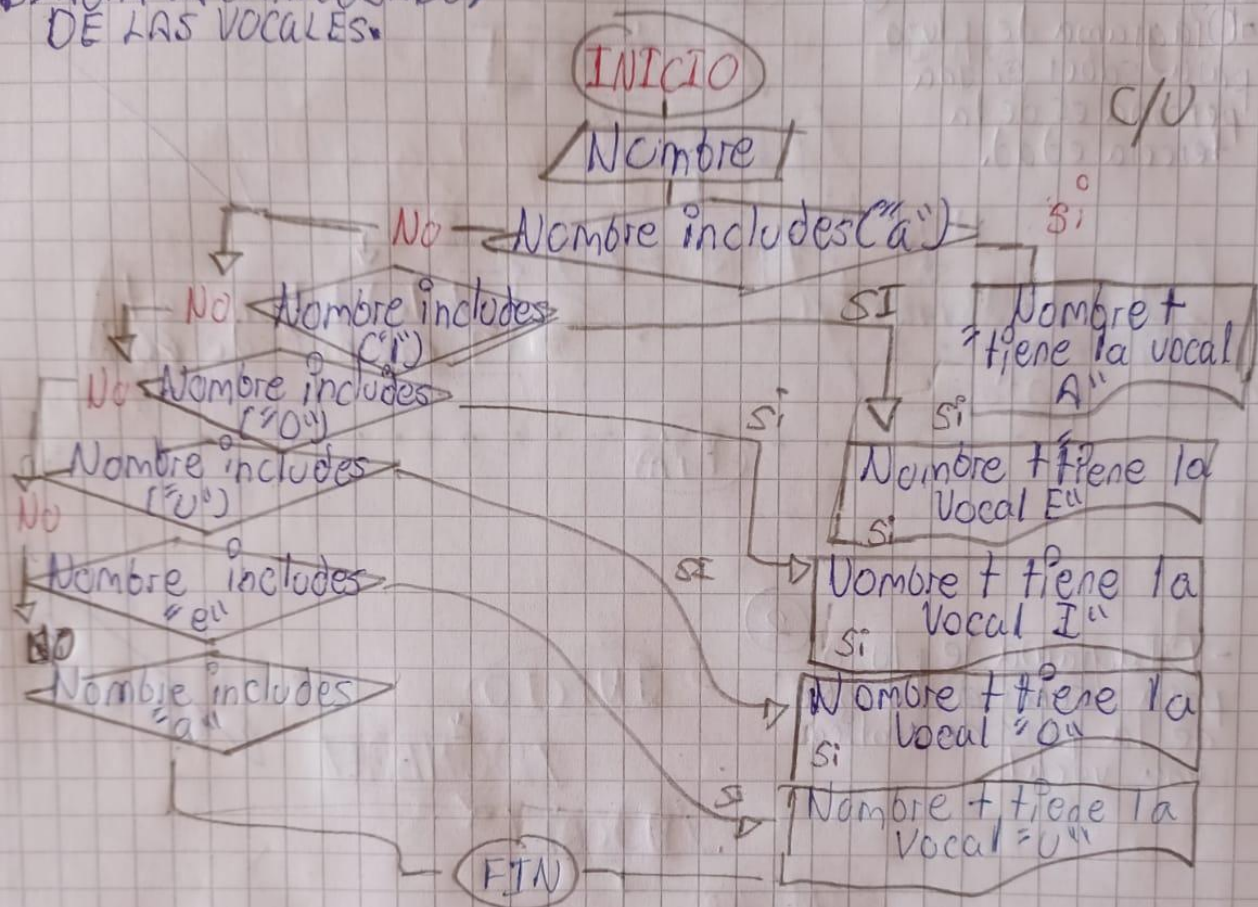 DE LAS VOCALES.
INICIO
C/U
Nombre
No
Nombre includes("a")
Si
No
Nombre includes
("i")
SI
Nombre +
"tiene la vocal
A"
No
Nombre includes
("O")
Si
Si
Nombre + "tiene la
Vocal E"
Nombre includes
("U")
No
Si
SI
Nombre + tiene la
Vocal I"
Nombre includes
"e"
Si
NO
Nombre includes
"a"
Nombre + tiene la
Vocal "O"
Si
Si
Nombre + tiene la
Vocal "U"
FIN